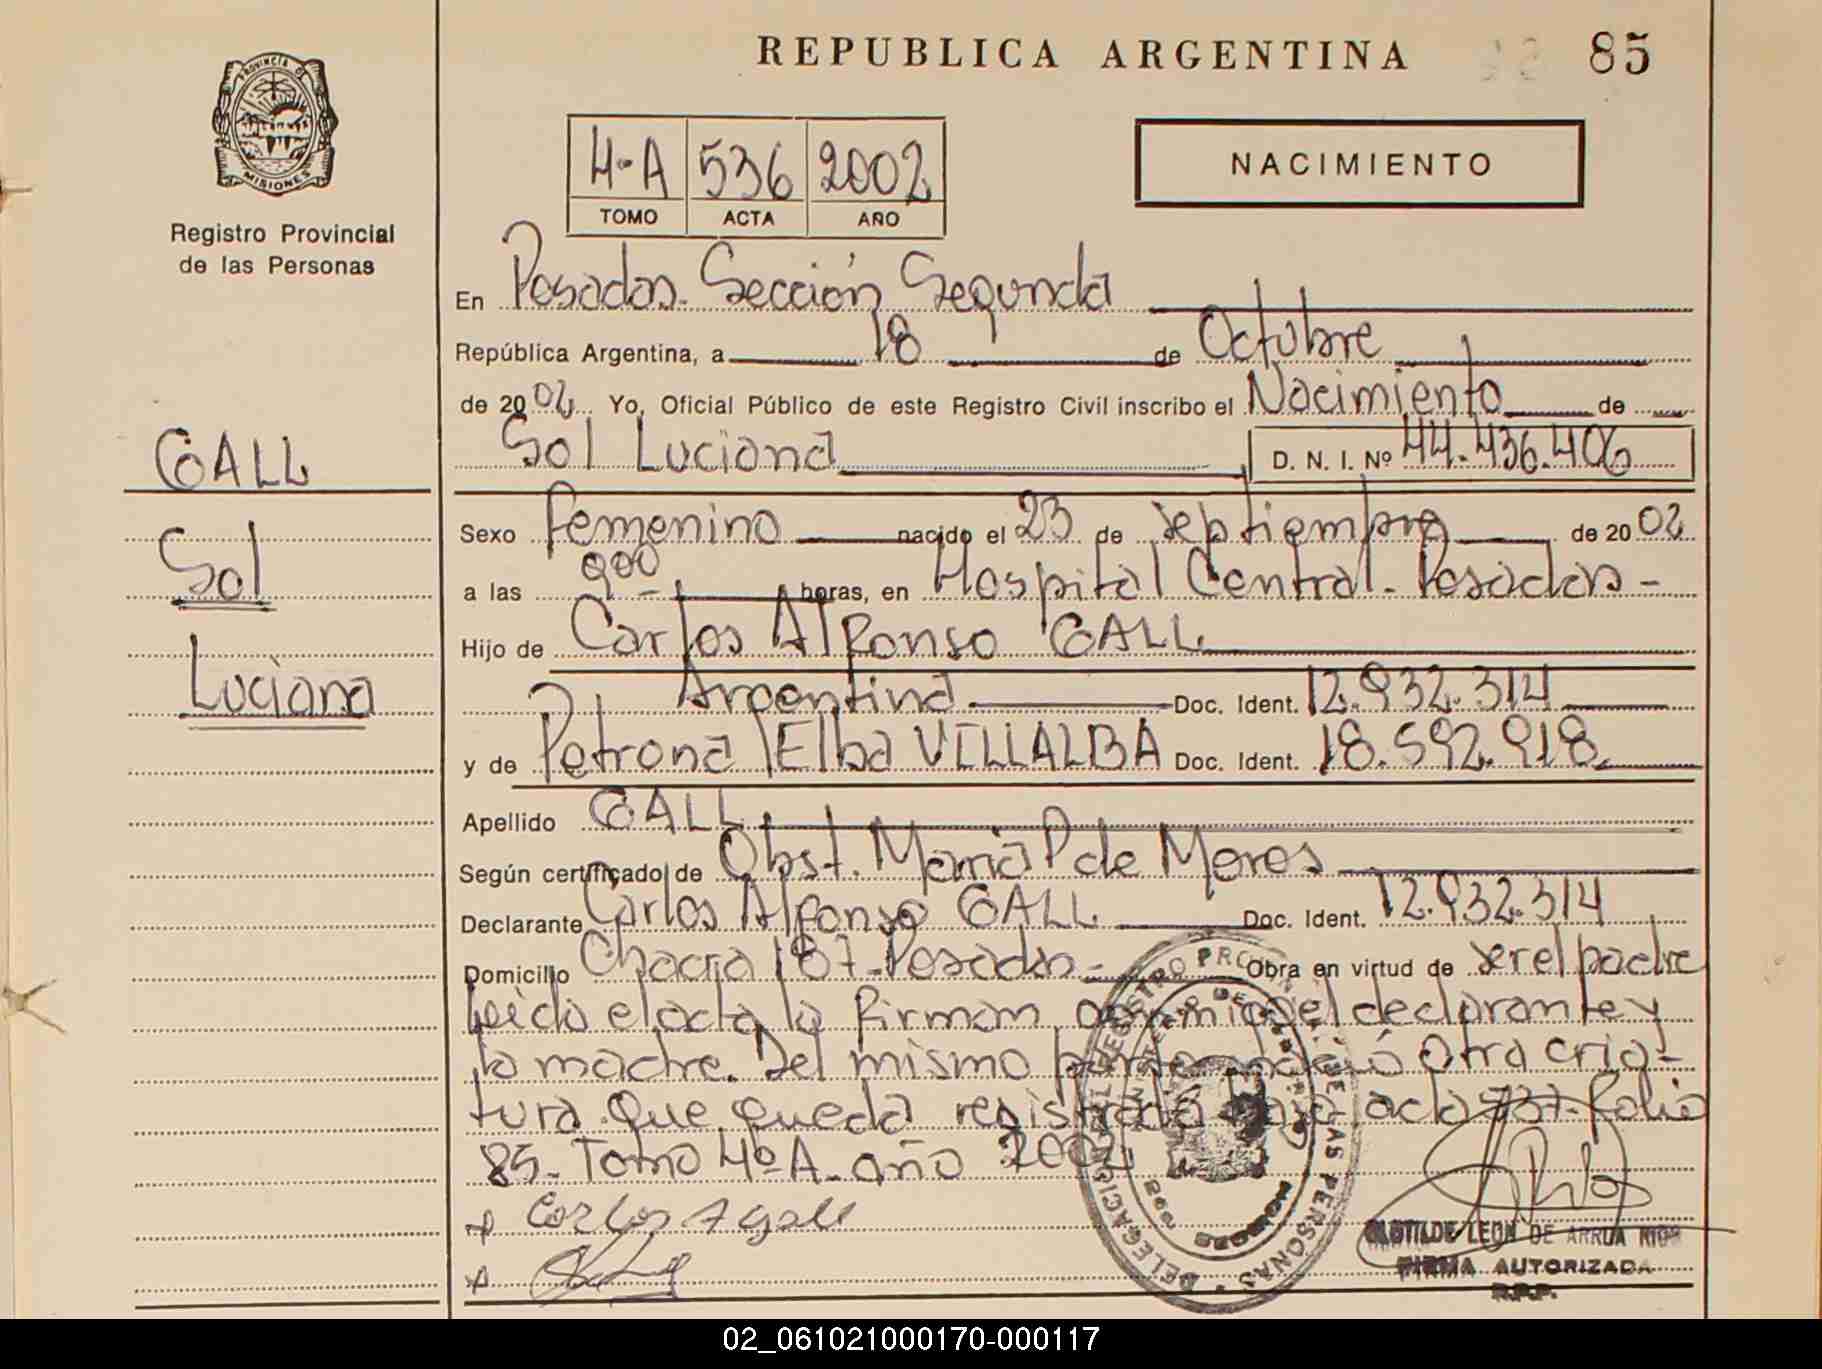 REPUBLICA ARGENTINA 85
PROVINCIA DE
MISIONES
Registro Provincial
de las Personas
4-A 536 2002
TOMO ACTA AÑO
NACIMIENTO
En Posadas. Sección Segunda
República Argentina, a 18 de Octubre
de 2002 Yo, Oficial Público de este Registro Civil inscribo el Nacimiento de
Sol Luciana D. N. I. Nº 44.436.406
GALL
Sol
Luciana
Sexo Femenino nacido el 23 de septiembre de 2002
a las 900 horas, en Hospital Central. Posadas-
Hijo de Carlos Alfonso GALL
Argentina Doc. Ident. 12.932.314
y de Petrona Elba VILLALBA Doc. Ident. 18.592.918
Apellido GALL
Según certificado de Obst. Maria P de Meros
Declarante Carlos Alfonso GALL Doc. Ident. 12.932.314
Domicilio Chacra 187-Posadas- Obra en virtud de ser el padre
Leido el acta la firman conmigo el declarante y
la madre. Del mismo parto nació otra cria-
tura que queda registrada bajo acta 537-folio
85-Tomo 4º A-año 2002
Carlos A gall
CLOTILDE LEON DE ARRUA RIOS
FIRMA AUTORIZADA
R.P.P.
DELEGACION DEL REGISTRO PROVINCIAL DE LAS PERSONAS
POSADAS
02_061021000170-000117